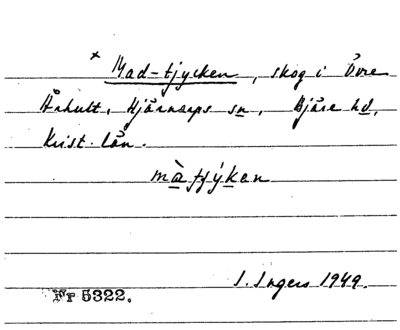 × Mad-tjycken, skog i Övre
Århult, Hjärnarps sn, Bjäre hd,
Krist. län.
màtjýken
I. Ingers 1949.
Fr 5322.